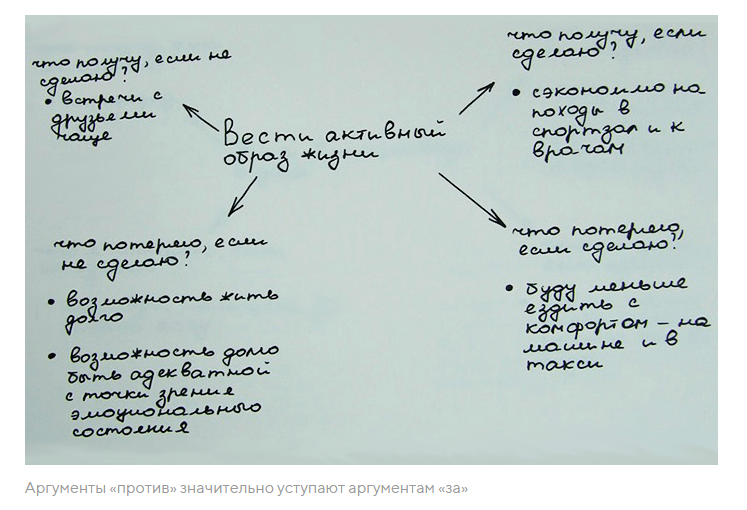 что получу, если не
сделаю?
• встречи с
друзьями
чаще
что получу, если
сделаю?
• сэкономлю на
походы в
спортзал и к
врачам
Вести активный
образ жизни
что потеряю, если
не сделаю?
• возможность жить
долго
• возможность долго
быть адекватной
с точки зрения
эмоционального
состояния
что потеряю,
если сделаю?
• буду меньше
ездить с
комфортом – на
машине и в
такси
Аргументы «против» значительно уступают аргументам «за»